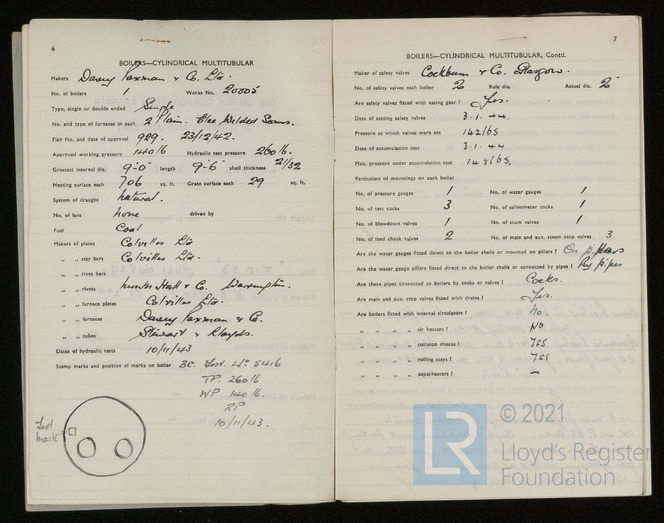 6
BOILERS—CYLINDRICAL MULTITUBULAR
Makers Davey Paxman & Co. Ltd.
No. of boilers 1 Works No. 20005
Type, single or double ended Single
No. and type of furnaces in each 2 Plain. Welded Seams.
Plan No. and date of approval 929. 23/12/42.
Approved working pressure 140 lb Hydraulic test pressure 260 lb.
Greatest internal dia. 9'-0" length 9'-6" shell thickness 21/32
Heating surface each 706 sq. ft. Grate surface each 29 sq. ft.
System of draught Natural.
No. of fans None driven by
Fuel Coal
Makers of plates Colvilles Ltd
„ „ stay bars Colvilles Ltd.
„ „ rivet bars
„ „ rivets & Co. Warrington.
„ „ furnace plates Colvilles Ltd.
„ „ furnaces Davey Paxman & Co.
„ „ tubes Stewart & Lloyds.
Dates of hydraulic tests 10/11/43
Stamp marks and position of marks on boiler BC. Test No 5416
TP. 260 lb
WP 140 lb.
RP
10/11/43.
Test
mark
7
BOILERS—CYLINDRICAL MULTITUBULAR, Contd.
Maker of safety valves Cockburn & Co. Glasgow.
No. of safety valves each boiler 2 Rule dia. Actual dia. 2"
Are safety valves fitted with easing gear? Yes.
Date of setting safety valves 3.1.44
Pressure at which valves were set 142 lbs
Date of accumulation test 3.1.44
Max. pressure under accumulation test 145 lbs.
Particulars of mountings on each boiler
No. of pressure gauges 1 No. of water gauges 1
No. of test cocks 3 No. of salinometer cocks 1
No. of blowdown valves 1 No. of scum valves 1
No. of feed check valves 2 No. of main and aux. steam stop valves 3
Are the water gauges fitted direct to the boiler shells or mounted on pillars? On pillars
Are the water gauge pillars fitted direct to the boiler shells or connected by pipes? By pipes
Are these pipes connected to boilers by cocks or valves? Cocks.
Are main and aux. stop valves fitted with drains? Yes.
Are boilers fitted with internal circulators? No.
„ „ „ „ air heaters? NO
„ „ „ „ collision chocks? YES
„ „ „ „ rolling stays? YES
„ „ „ „ superheaters? –
LR
© 2021
Lloyd's Register
Foundation